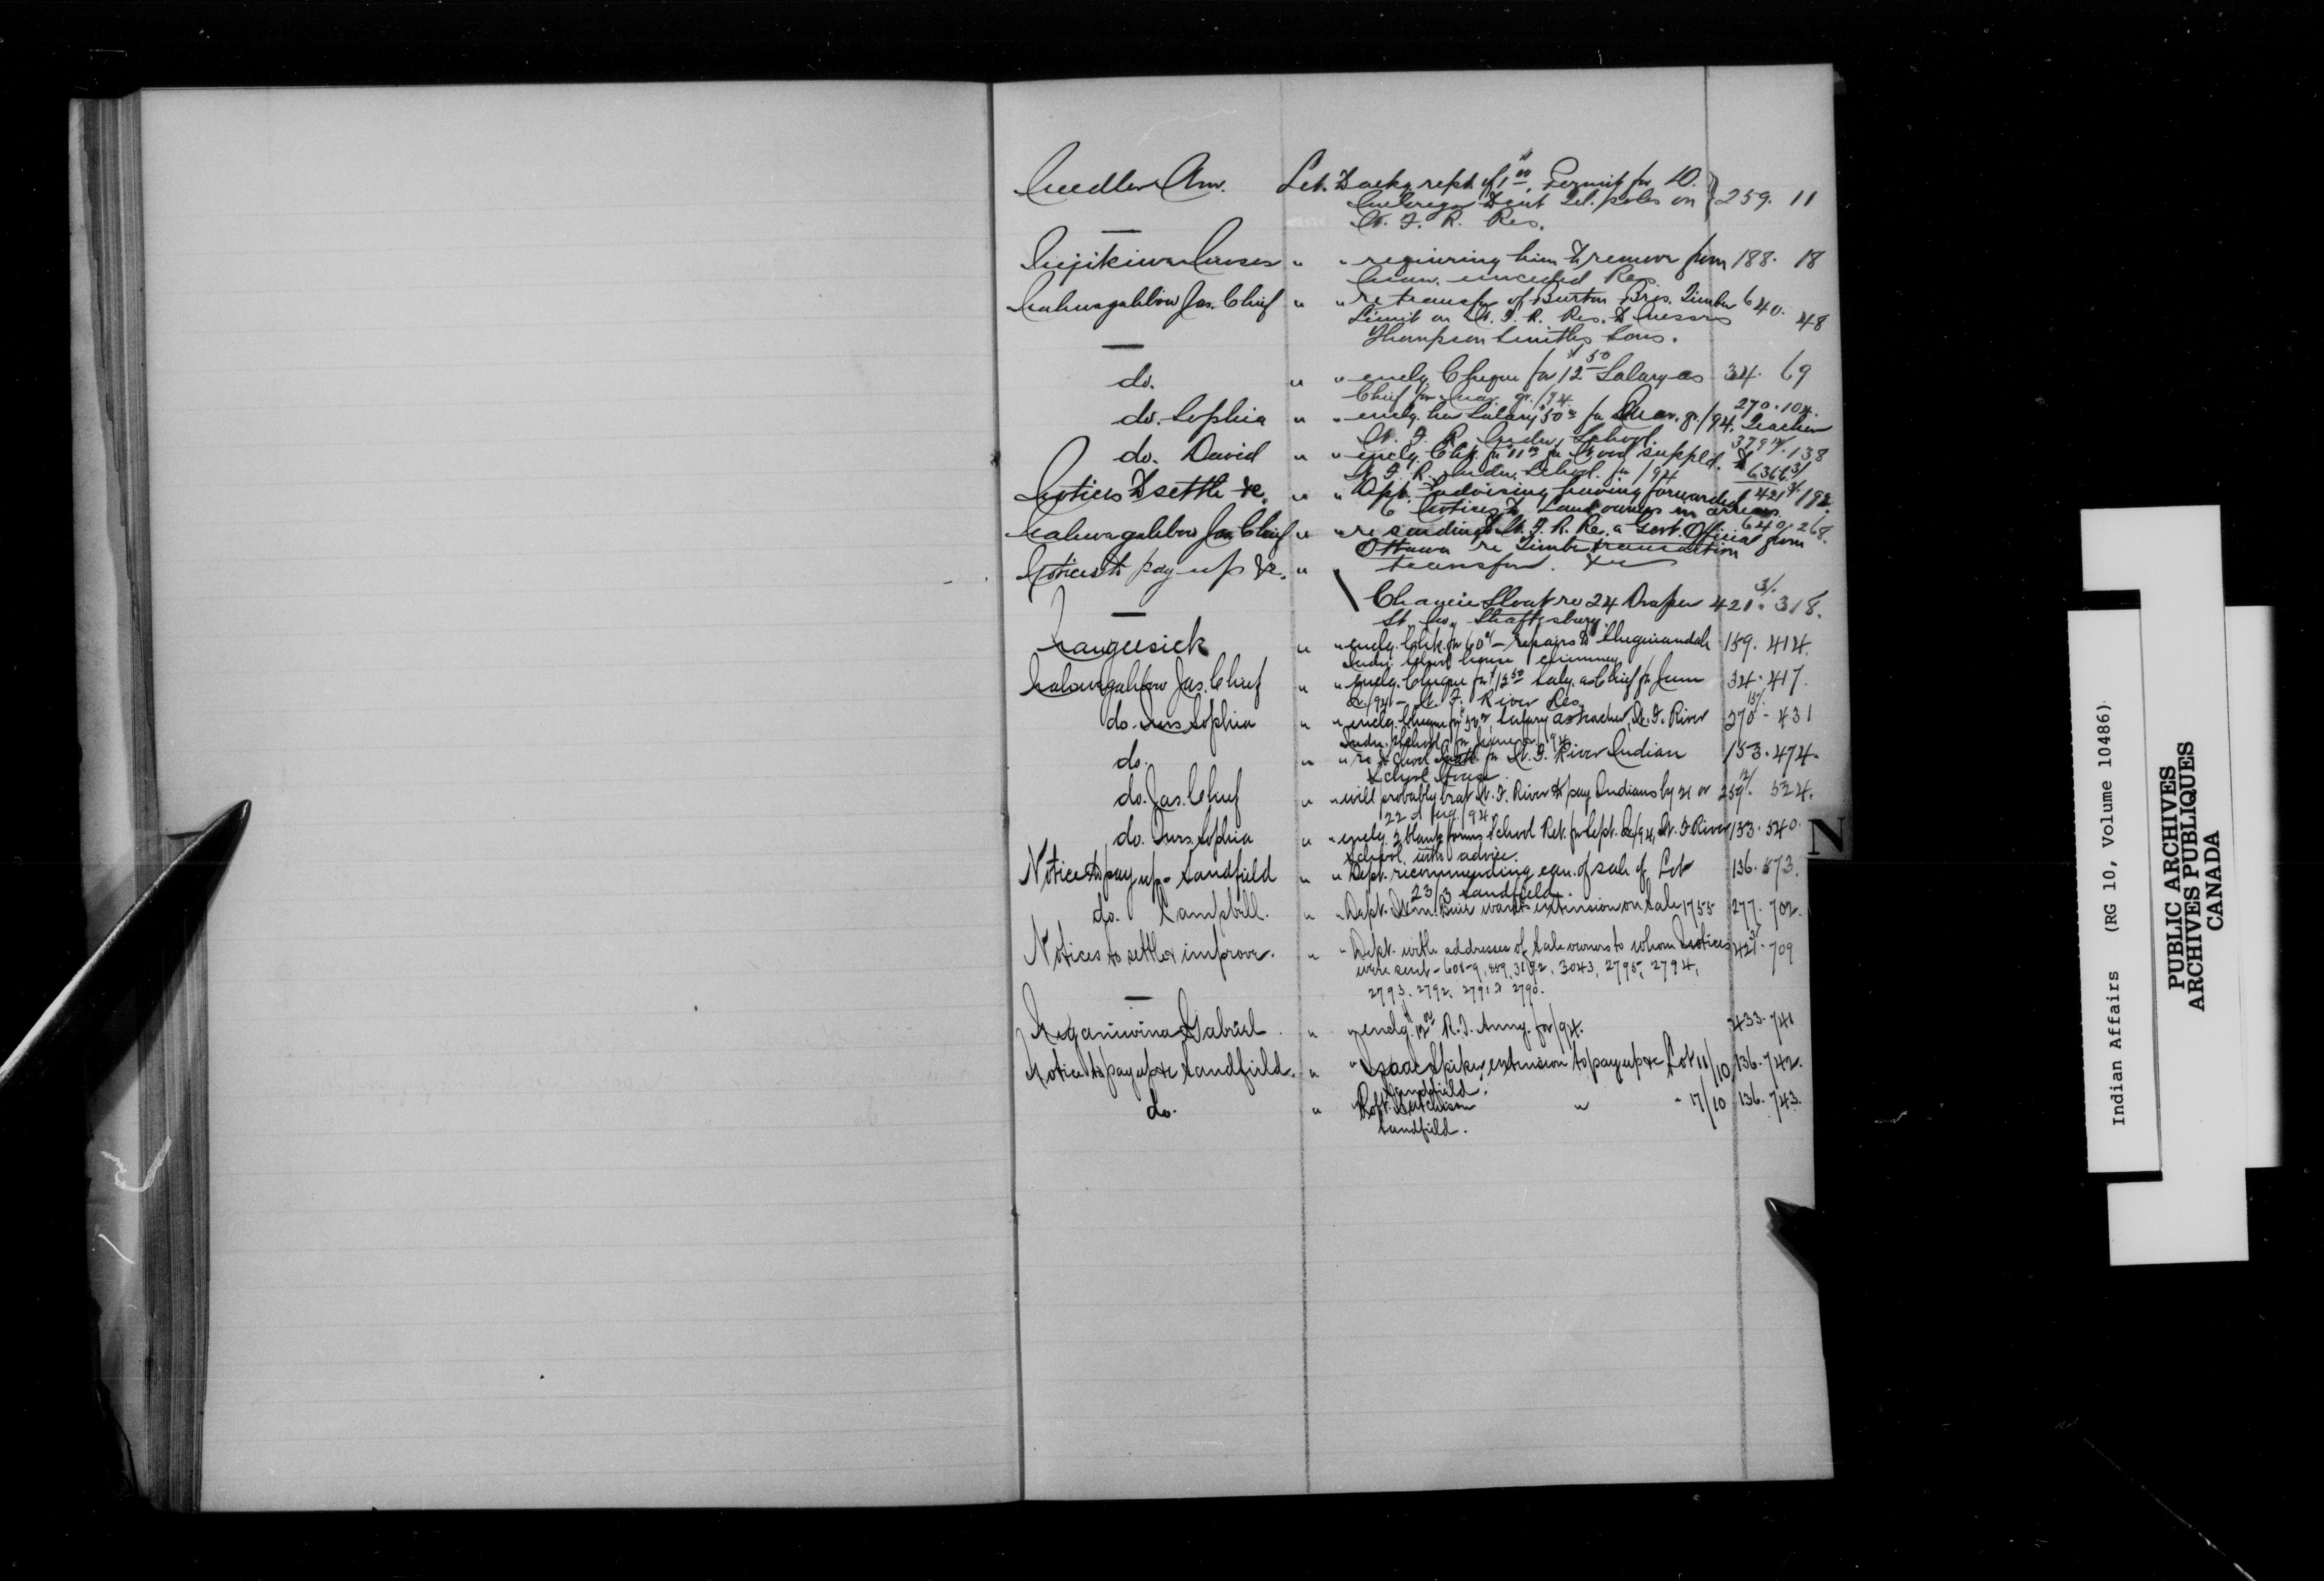 Needler Wm. Let. to ackg rept. of $1.00, Permit for D.
McGregor to cut tel. poles on 259. 11
W. F. R. Res.
Nejikiwa Moses " " requiring him to remove from 188. 18
Man. unceded Res.
Nahwagahbow Jas. Chief " " re transfer of Burton Bros. Timber 640. 48
Limit on W. F. R. Res. to Messrs
Thompson Smiths Sons.
do. " " enclg. Cheque for $12 50 Salary as 34. 69
Chief for Mar. qr. /94.
do. Sophia " " enclg. her Salary $50 00 for Mar. qr. /94. Teacher 270. 104.
W. F. R. Indn. School.
do. David " " enclg. Chq. for for Wood suppld. to 379 138
W. F. R. Indn. School for /94 636
Notices to settle &c. " " Dept. advising having forwarded 421 3/. 192.
6 Notices to Land owners in arrears
Nahwagahbow Jas. Chief " " re sending to W. F. R. Re. a Govt. Official from 640/268.
Ottawa re Timber transaction
Notices to pay up &c. " transfer. &c
Chancie Sloat re 24 Draper 421 3/. 318.
St. Shaftesbury.
Naugusick " " enclg. Chk. for 60 repairs to Shegwiandah 159. 414.
Indn. School house chimney
Nahwagahbow Jas. Chief " " enclg. Cheque for $12 50 Saly. as Chief for June 34. 417.
Qr/94 - W. F. River Res.
do. Mrs. Sophia " " enclg. Cheque for $50 00 Salary as teacher, W. F. River 270 - 431
Indn. School, for June qr /94
do. " " re School for W. F. River Indian 153. 474.
School House.
do. Jas. Chief " " will probably be at W. F. River to pay Indians by 21 or 259 12/. 524.
22 Aug /94
do. Mrs. Sophia " " enclg. 3 blank forms School Ret. for Sept. Qr/94, W. F. River 133. 540.
School. with advice.
Notices to pay up - Sandfield " " Dept. recommending can. of sale of Lot 136. 573.
23/3 Sandfield.
do. Campbell. " " Dept. Wm. wants extension on Sale 1755 277. 702.
Notices to settle & improve. " " Dept. with addresses of Sale owners to whom Notices 421 3/. 709
were sent - 608-9, 859, 3192, 3043, 2795, 2794,
2793. 2792. 2791 & 2790.
Neganiwina Gabriel " " enclg. $12 00 R. T. Anny. for /94. 433. 741
Notice to pay up &c Sandfield. " " Isaac Spiker extension to pay up &c Lot 11/10 136. 742.
Sandfield.
do. " " Robt. Hutchison " - 17/10 136. 743.
Sandfield.
N
Indian Affairs (RG 10, Volume 10486)
PUBLIC ARCHIVES
ARCHIVES PUBLIQUES
CANADA